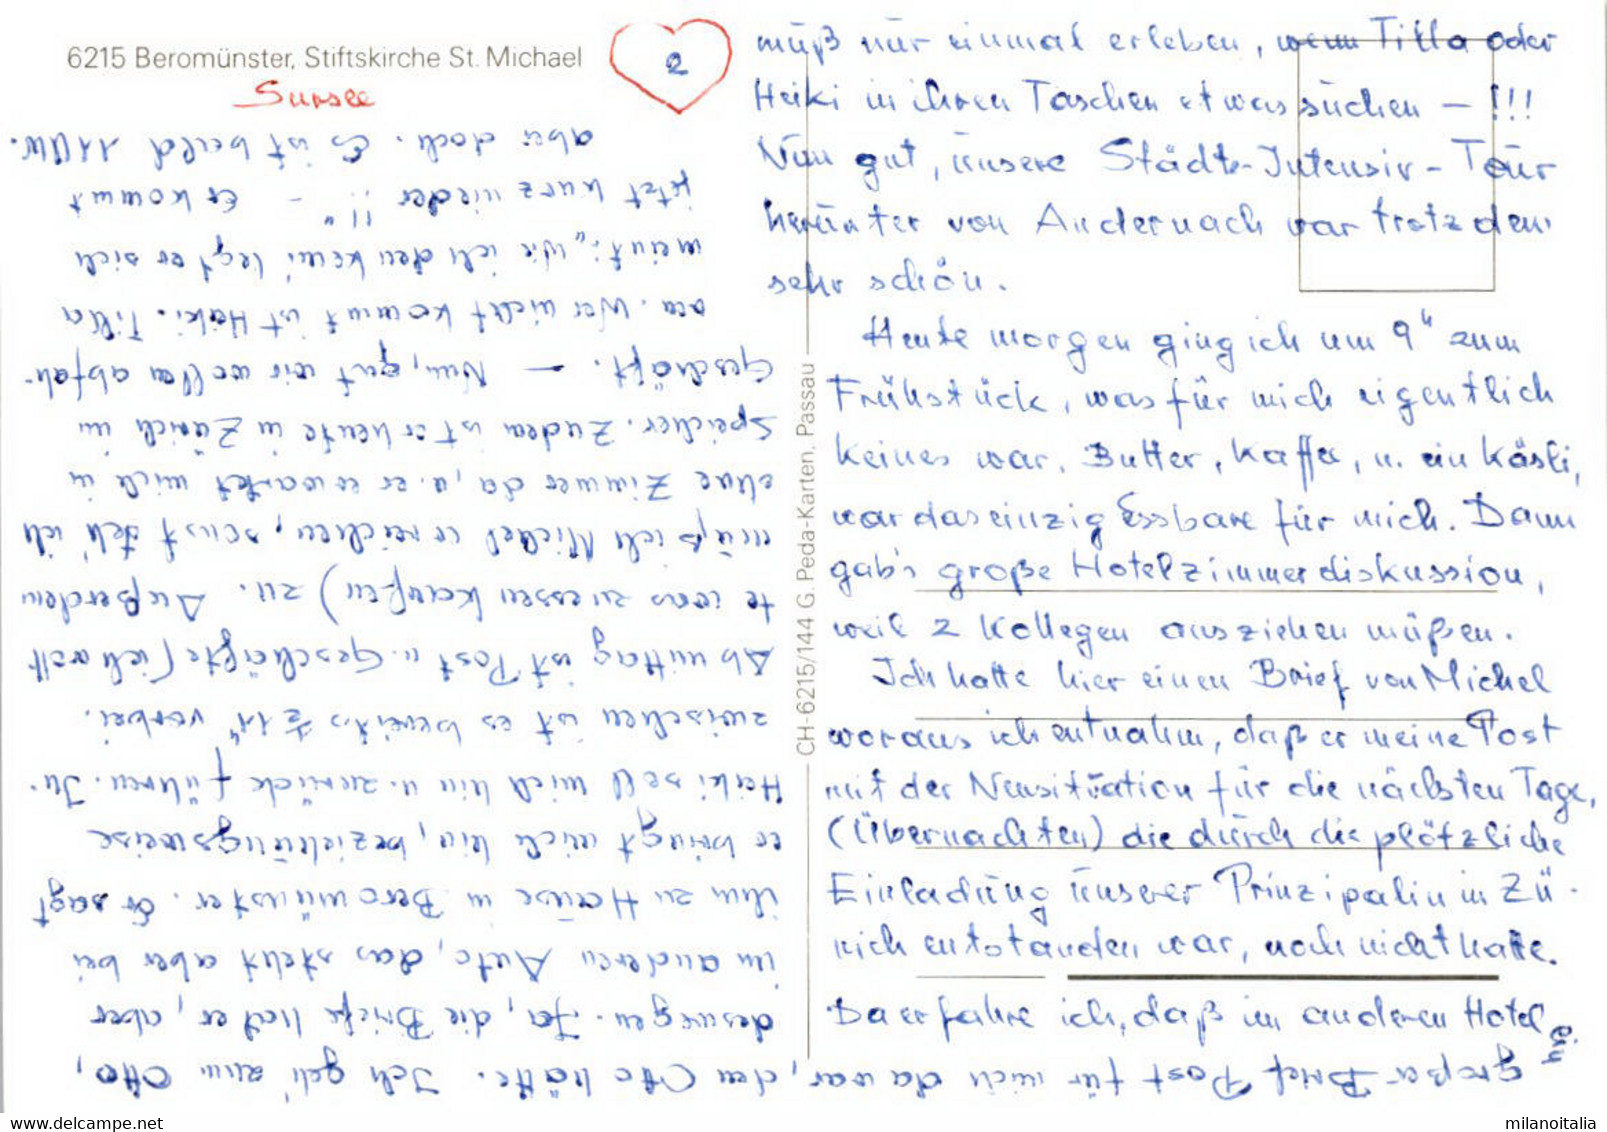 6215 Beromünster, Stiftskirche St. Michael
Sursee
2
müß nür einmal erleben, wenn Tilla oder
Heiki in ihren Taschen etwas süchen – !!!
Nün gut, ünsere Städte-Intensiv-Toür
herünter von Andernach war trotzdem
sehr schön.
Heute morgen ging ich um 9" zum
Frühstück, was für mich eigentlich
keines war. Butter, Kaffee, u. ein Käsli,
war das einzig Essbare für mich. Dann
gab's große Hotelzimmerdiskussion,
weil 2 Kollegen ausziehen müßen.
Ich hatte hier einen Brief von Michel
woraus ich entnahm, daß er meine Post
mit der Neusitüation für die nächsten Tage,
(Übernachten) die dürch die plötzliche
Einladüng ünserer Prinzipalin in Zü-
rich entstanden war, noch nicht hatte.
Da erfahre ich, daß im anderen Hotel ein
großer Brief Post für mich da war, den Otto hätte. Ich geh' zum Otto,
deswegen. Ja, die Briefe hat er, aber
im anderen Auto, das steht aber bei
ihm zu Haüse in Beromünster. Er sagt
er bringt mich hin, beziehüngsweise
Heiki soll mich hin u. zurück führen. In-
zwischen ist es bereits ± 11" vorbei.
Ab mittag ist Post u. Geschäfte (ich wollt
te was zu essen kaufen) zu. Außerdem
müß ich Michel erreichen, sonst steh' ich
ohne Zimmer da, u. er erwartet mich in
Speicher. Zudem ist er heute in Zürich im
Geschäft. — Nun, gut wir wollen abfah-
ren. Wer nicht kommt ist Heiki. Tilla
meint: „Wie ich den kenn' legt er sich
jetzt kurz nieder !!" – Er kommt
aber doch. Es ist bald 11 Uhr.
CH-6215/144 G. Peda-Karten, Passau
www.delcampe.net
milanoitalia